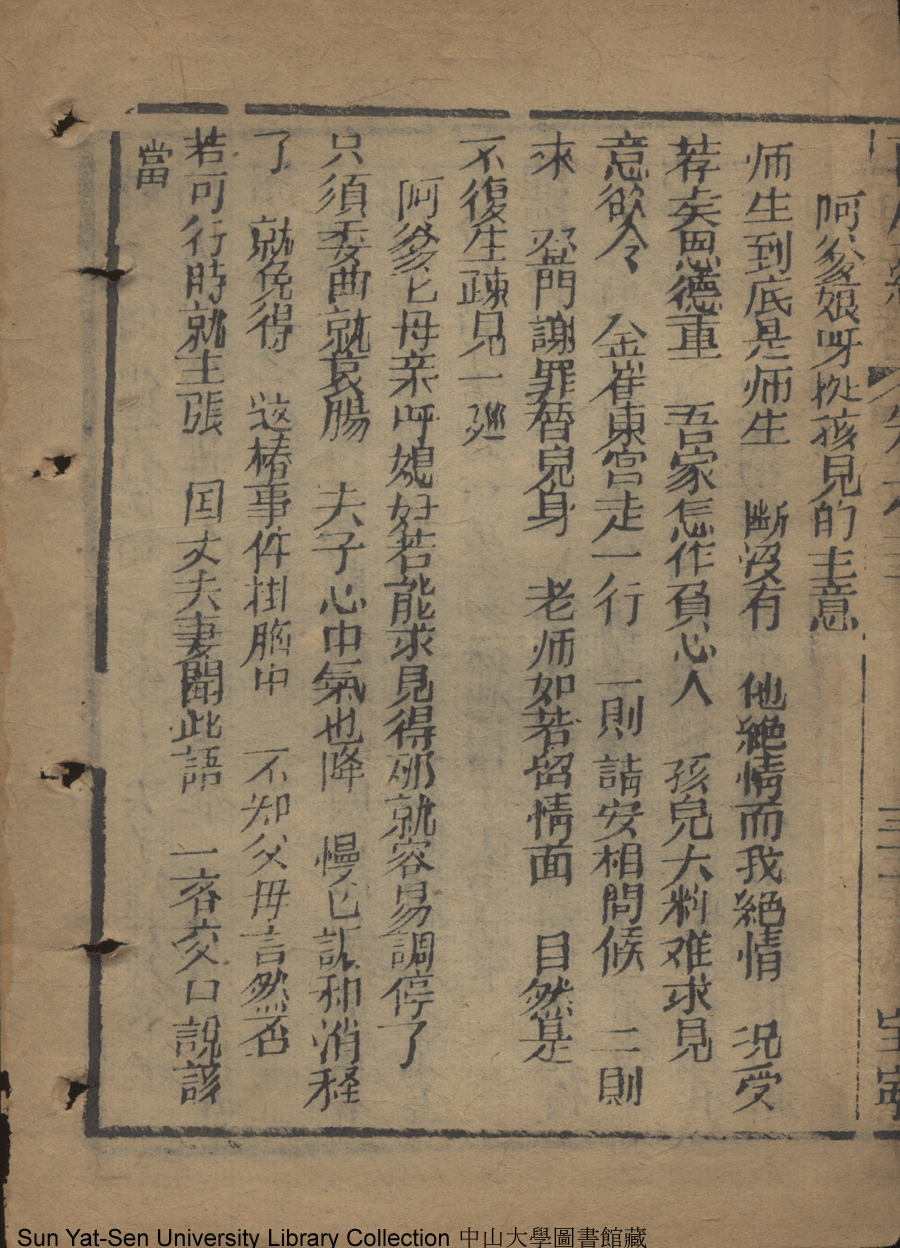 阿爹娘呀從孩兒的主意
师生到底是师生 斷沒有 他絕情而我絕情 况受
荐矣恩德重 吾家怎作負心人 孩兒大料难求見
意欲令 金崔東宮走一行 一則請安相問候 二則
來 登門謝罪替兒身 老师如若留情面 自然是
不復生疎見一
阿爹匕母亲吓媳妇若能求見得那就容易調停了
只須委曲就哀腸 夫子心中氣也降 慢匕訴和消
了 就免得 这樁事件掛胸中 不知父母言然否
若可行時就主張 囯丈夫妻聞此語 一齐交口說該
當
Sun Yat-Sen University Library Collection 中山大學圖書館藏